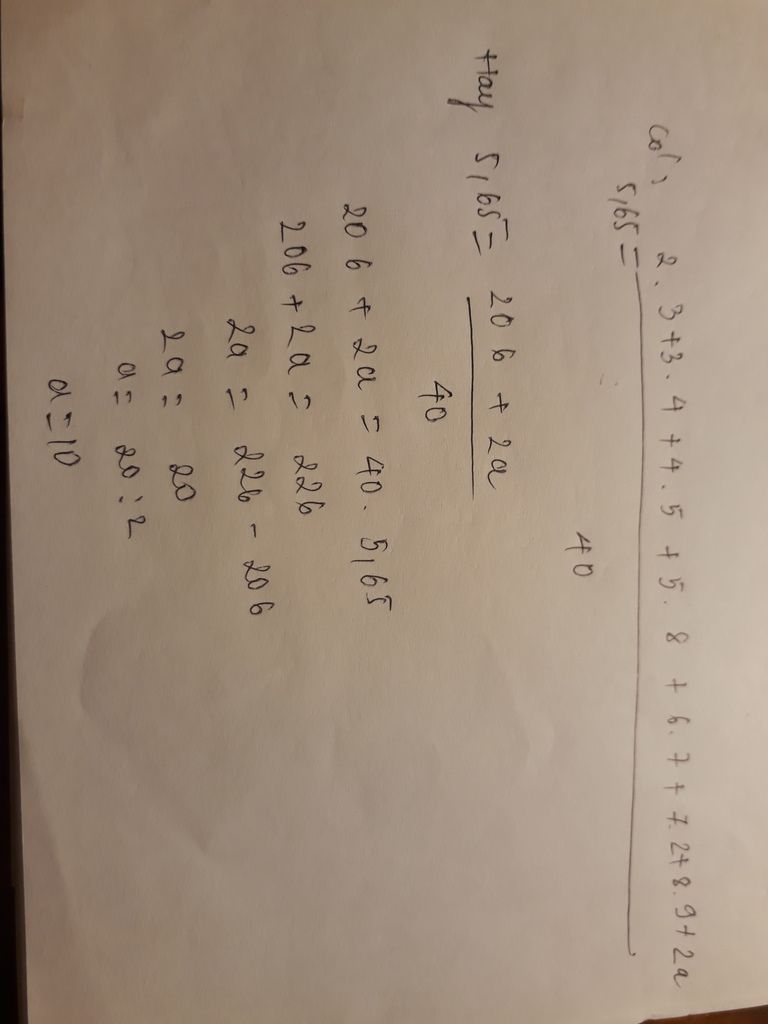 Có:
2.3+3.4+4.5+5.8+6.7+7.2+8.9+2a
5,65=
40
Hay 5,65= 206+2a
40
206+2a=40.5,65
206+2a= 226
2a = 226-206
2a= 20
a= 20:2
a=10